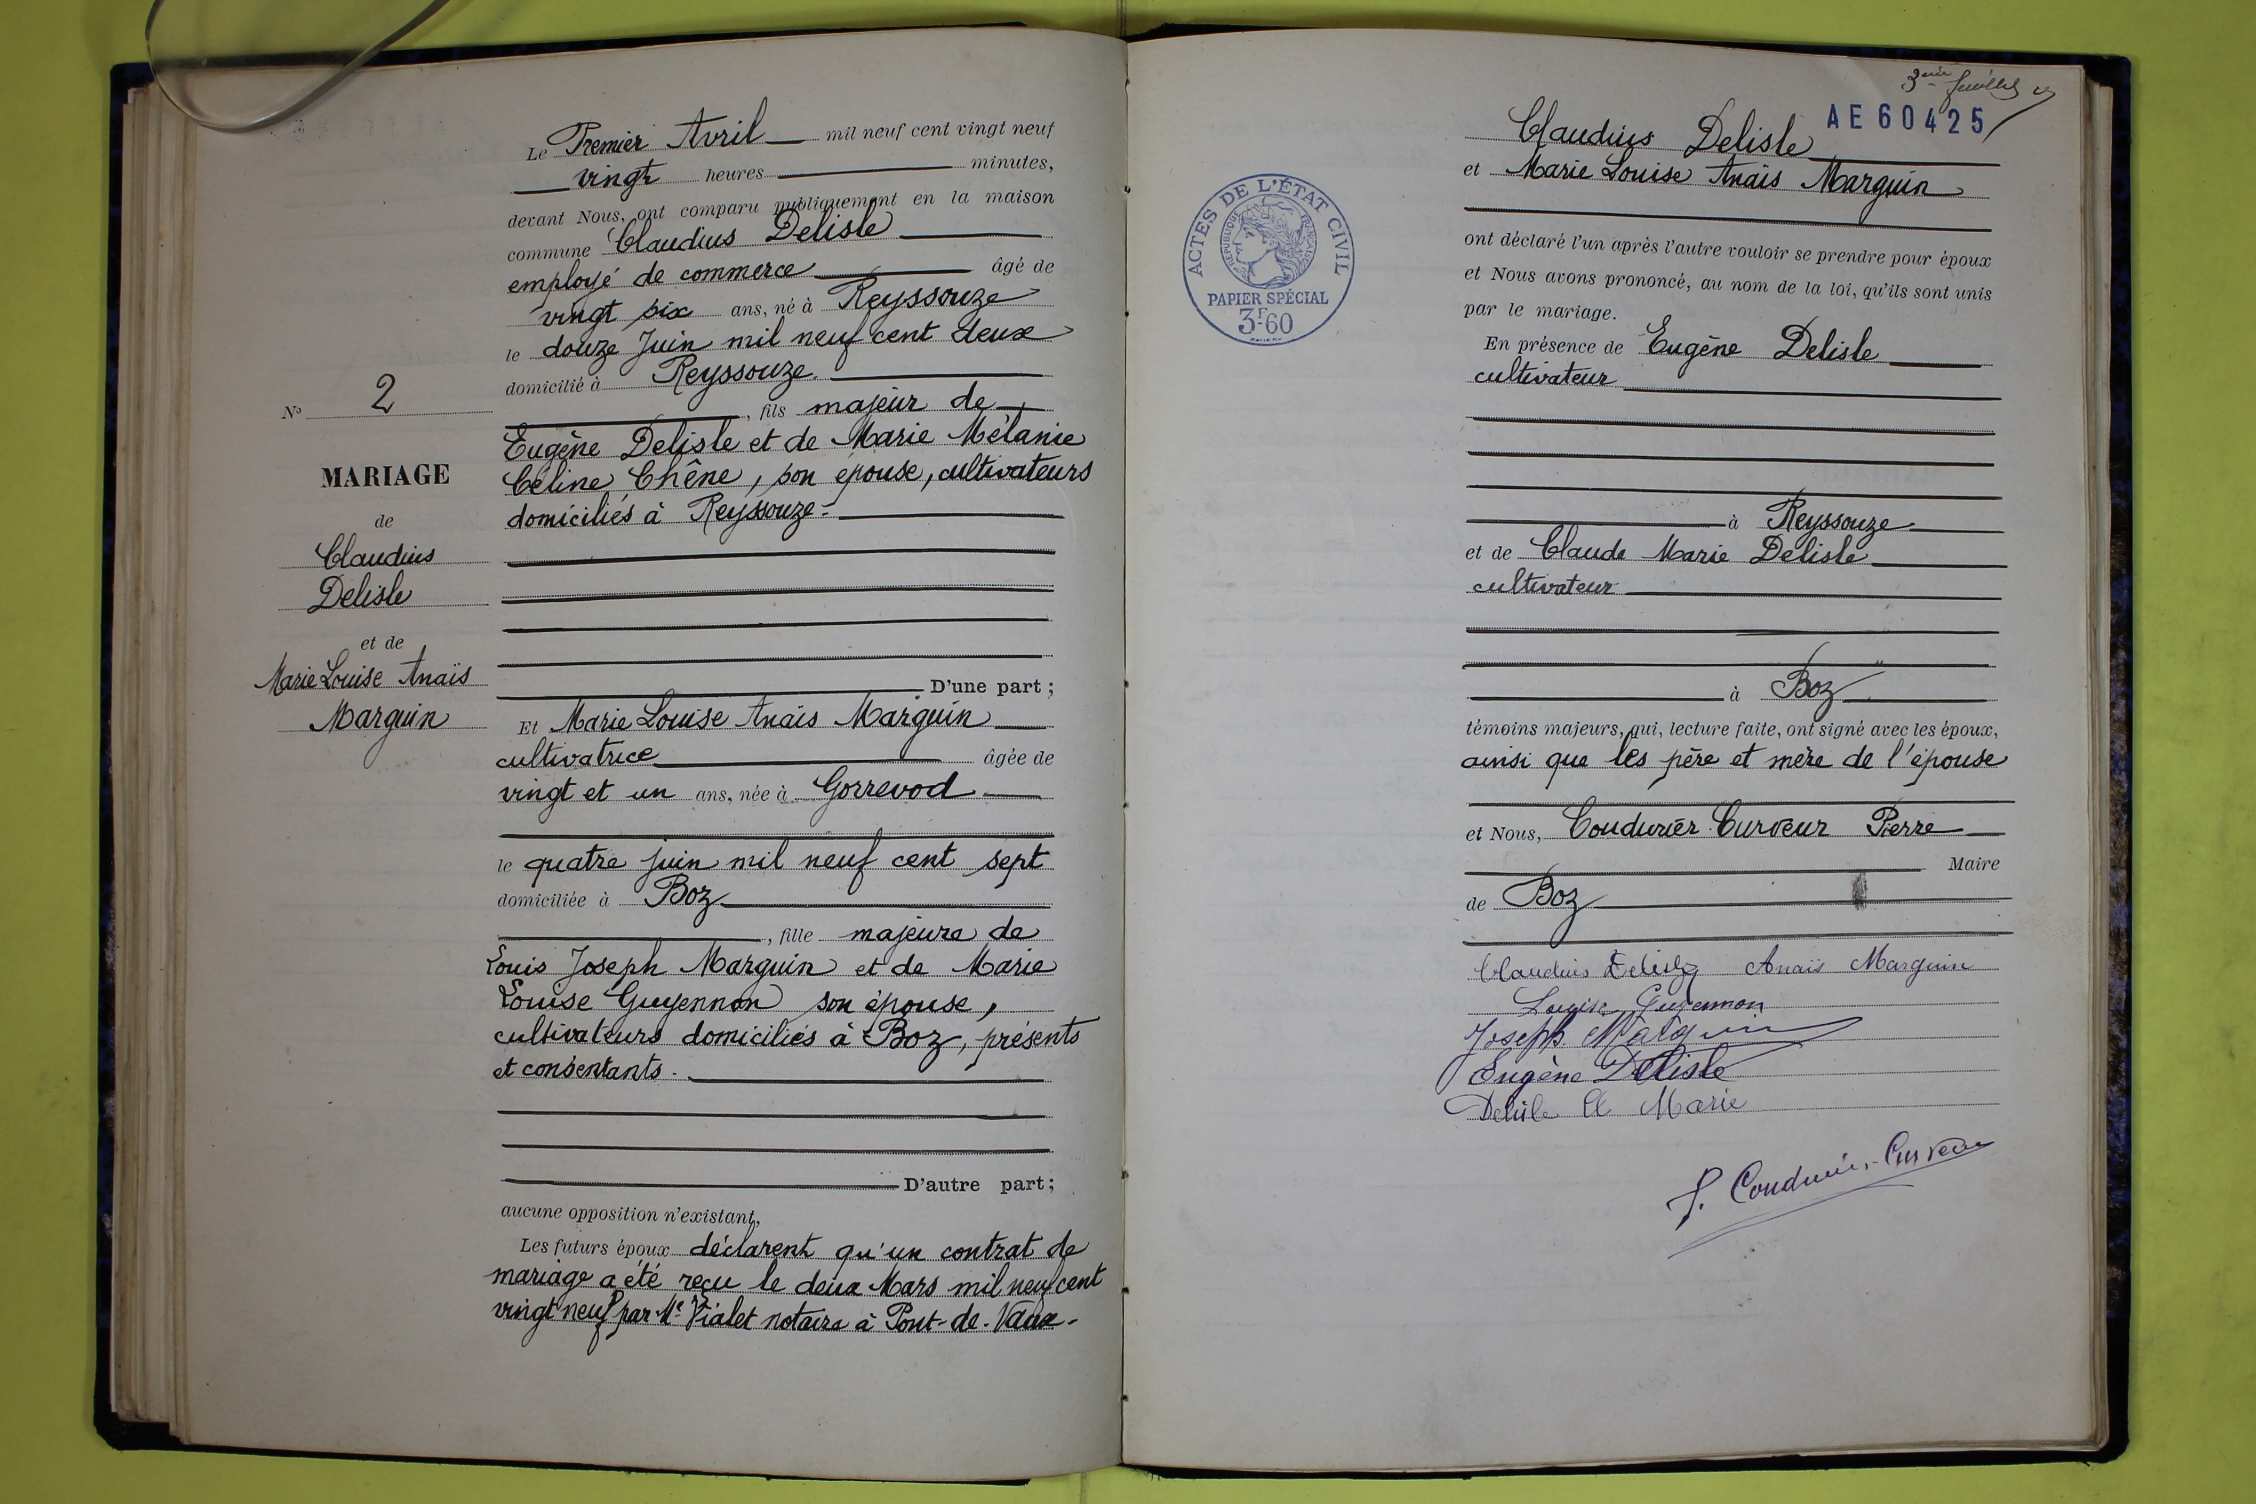 Le Premier Avril mil neuf cent vingt neuf
vingt heures minutes,
devant Nous, ont comparu publiquement en la maison
commune Claudius Delisle
employé de commerce âgé de
vingt six ans, né à Reyssouze
le douze Juin mil neuf cent deux
domicilié à Reyssouze.
, fils majeur de
Eugène Delisle et de Marie Mélanie
Céline Chêne, son épouse, cultivateurs
domiciliés à Reyssouze.
No 2
MARIAGE
de
Claudius
Delisle
et de
Marie Louise Anaïs
Marguin
D'une part ;
Et Marie Louise Anaïs Marguin
cultivatrice âgée de
vingt et un ans, née à Gorrevod
le quatre juin mil neuf cent sept
domiciliée à Boz
, fille majeure de
Louis Joseph Marguin et de Marie
Louise Guyennon son épouse,
cultivateurs domiciliés à Boz, présents
et consentants.
D'autre part ;
aucune opposition n'existant,
Les futurs époux déclarent qu'un contrat de
mariage a été reçu le deux Mars mil neuf cent
vingt neuf par Me Vialet notaire à Pont-de-Vaux.
3eme feuillet
AE 60425
ACTES DE L'ÉTAT CIVIL
RÉPUBLIQUE FRANÇAISE
PAPIER SPÉCIAL
3F60
Claudius Delisle
et Marie Louise Anaïs Marguin
ont déclaré l'un après l'autre vouloir se prendre pour époux
et Nous avons prononcé, au nom de la loi, qu'ils sont unis
par le mariage.
En présence de Eugène Delisle
cultivateur
à Reyssouze
et de Claude Marie Delisle
cultivateur
à Boz
témoins majeurs, qui, lecture faite, ont signé avec les époux,
ainsi que les père et mère de l'épouse
et Nous, Coudurier Curveur Pierre
Maire
de Boz
Claudius Delisle Anaïs Marguin
Louise Guyennon
Joseph Marguin
Eugène Delisle
Delisle Cl Marie
P. Coudurier-Curveur